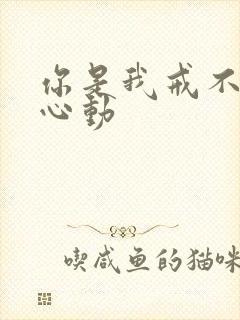 你是我戒不
心動
喫咸鱼的猫咪